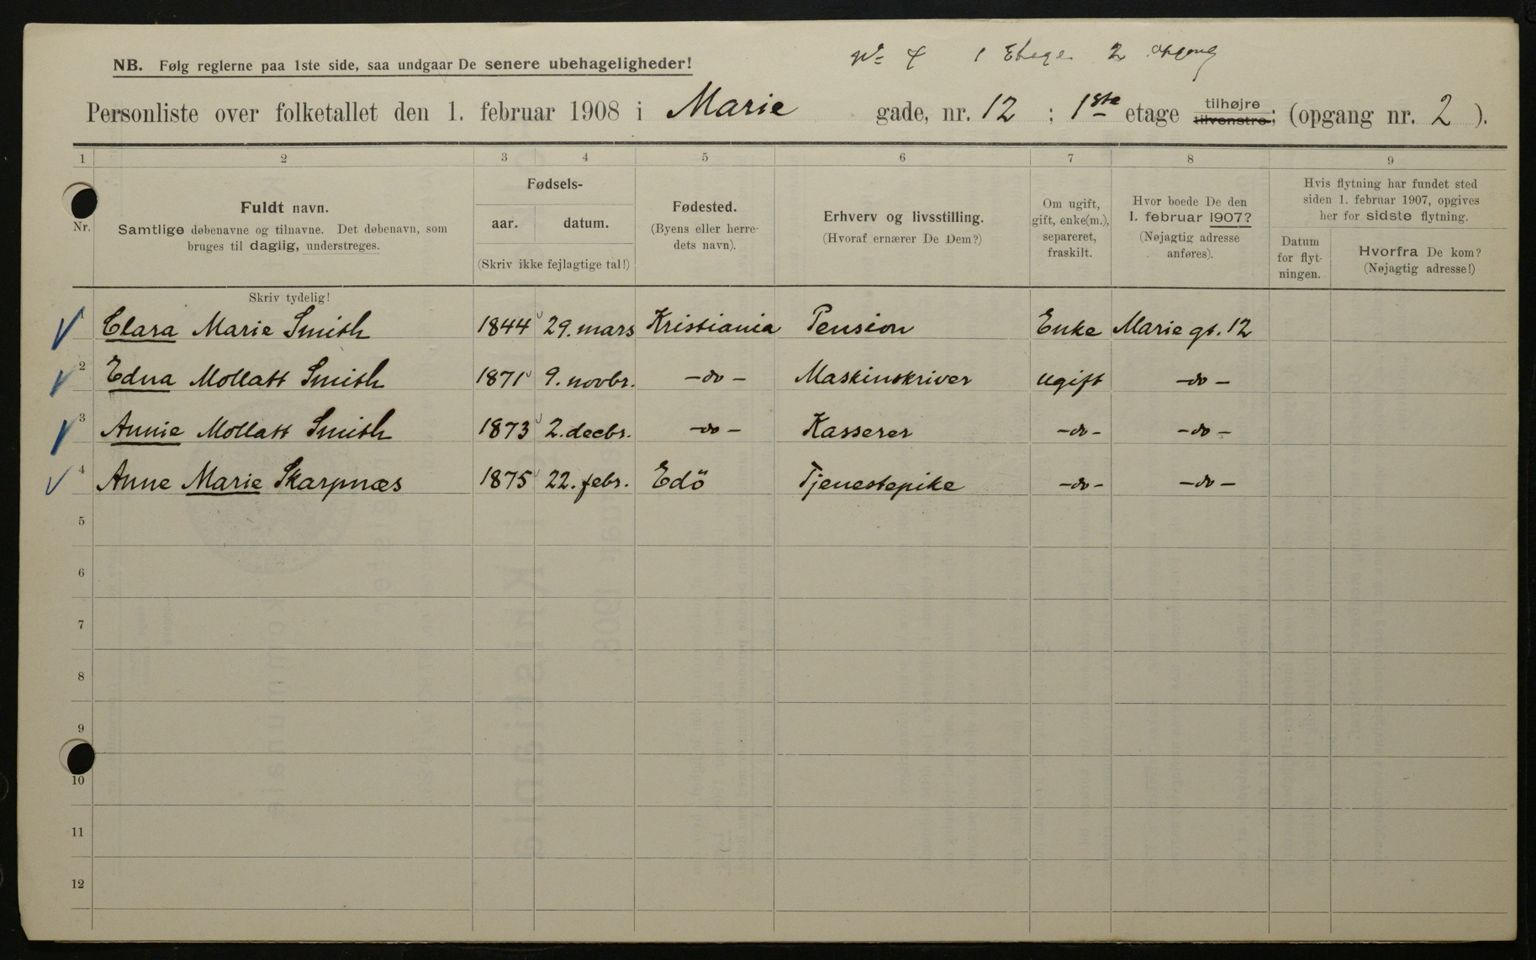 NB. Følg reglerne paa 1ste side, saa undgaar De senere ubehageligheder!
1 Etage 2
Personliste over folketallet den 1. februar 1908 i Marie gade, nr. 12 ; 1ste etage tilhøjre tilvenstre; (opgang nr. 2 ).
1 2 3 4 5 6 7 8 9
Nr.
Fuldt navn.
Samtlige døbenavne og tilnavne. Det døbenavn, som
bruges til daglig, understreges.
Fødsels-
aar. datum.
(Skriv ikke fejlagtige tal!)
Fødested.
(Byens eller herre-
dets navn).
Erhverv og livsstilling.
(Hvoraf ernærer De Dem?)
Om ugift,
gift, enke(m.),
separeret,
fraskilt.
Hvor boede De den
1. februar 1907?
(Nøjagtig adresse
anføres).
Hvis flytning har fundet sted
siden 1. februar 1907, opgives
her for sidste flytning.
Datum
for flyt-
ningen.
Hvorfra De kom?
(Nøjagtig adresse!)
Skriv tydelig!
Clara Marie Smith 1844 29. mars Kristiania Pension Enke Marie gt. 12
2 Edna Mollatt Smith 1871 9. novbr. -do- Maskinskriver ugift -do-
3 Annie Mollatt Smith 1873 2. decbr. -do- Kasserer -do- -do-
4 Anne Marie Skarpnæs 1875 22. febr. Edö Tjenestepike -do- -do-
5
6
7
8
9
10
11
12